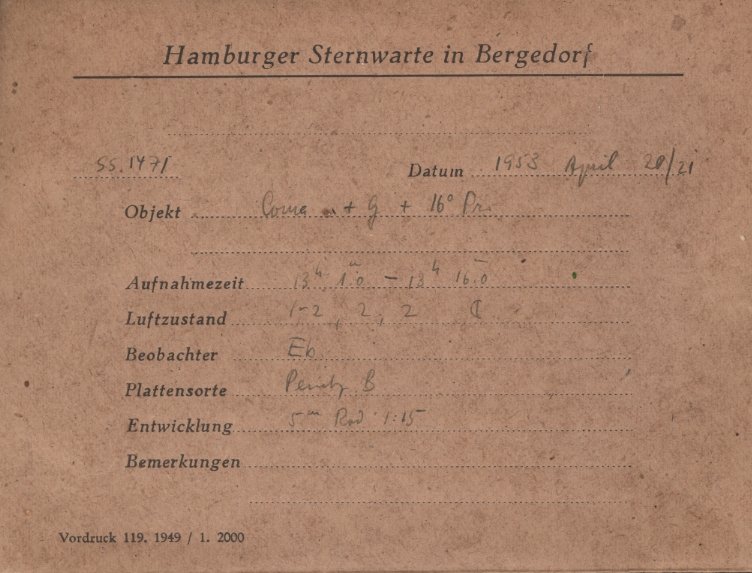 Hamburger Sternwarte in Bergedorf
SS.1471
Datum 1953 April 20/21
Objekt Coma + G + 16° Pr.
Aufnahmezeit 13h 1m.0 - 13h 16m.0
Luftzustand 1-2, 2, 2
Beobachter Eb
Plattensorte B
Entwicklung 5m Rod 1:15
Bemerkungen
Vordruck 119. 1949 / 1. 2000